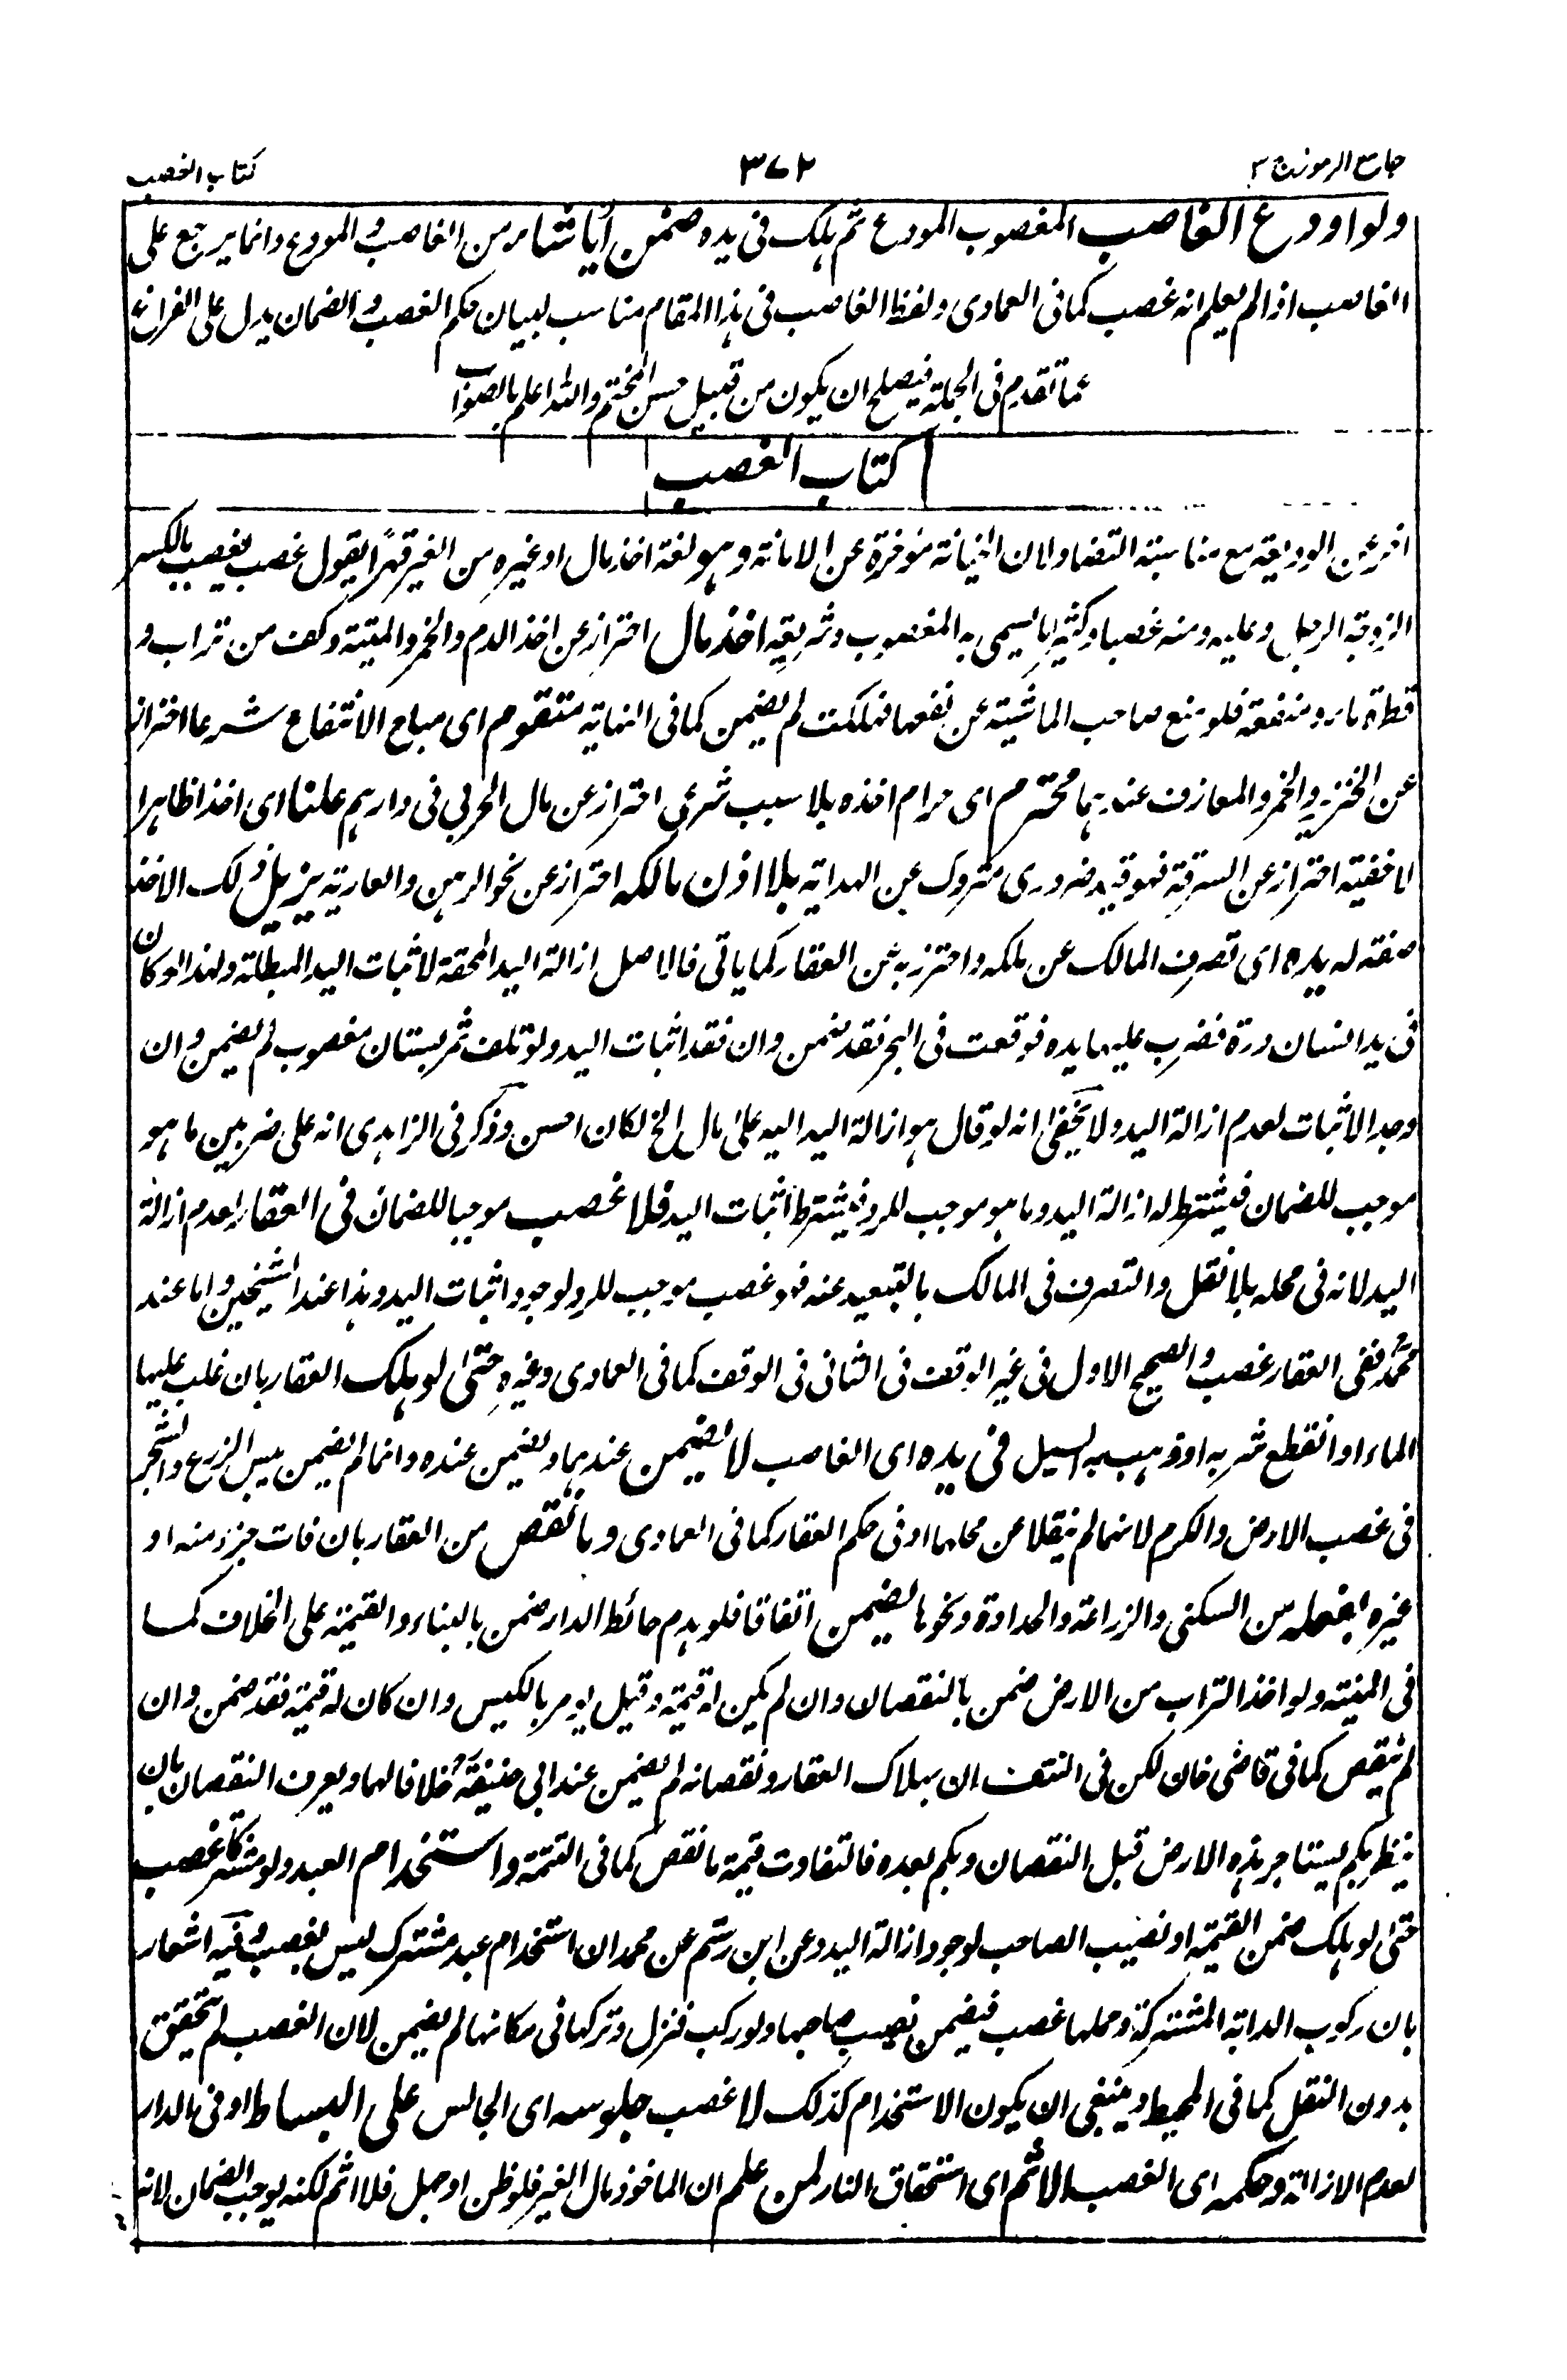 جامع الرموز ج ٣
٣٧٢
كتاب الغصب
ولو اودع الغاصب المغصوب المودع ثم هلك فى يده ضمن ايا شاء من الغاصب والمودع وانما يرجع على
الغاصب اذا لم يعلم انه غصب كما فى العمادى ولفظ الغاصب فى هذا المقام مناسب لبيان حكم الغصب والضمان يدل على الفراغ
عما تقدم فى الجملة فيصلح ان يكون من قبيل حسن المختتم والله اعلم بالصواب
كتاب الغصب
اخر عن الوديعة مع مناسبته التضاد لان الخيانة مؤخرة عن الامانة وهو لغة اخذ مال او غيره من الغير قهرًا يقول غصب يغصب بالكسر
الزوجة الرجل وعليه ومنه غصبا وكثيرا يسمى به المغصوب وشريعة اخذ مال احتراز عن اخذ الدم والخمر والميتة وكف من تراب و
قطرة ماء ومنفعة فلو منع صاحب الماشية عن نفعها فهلكت لم يضمن كما فى النهاية متقوم اى مباح الانتفاع شرعا احتراز
عن الخنزير والخمر والمعازف عندهما محترم اى حرام اخذه بلا سبب شرعى احتراز عن مال الحربى فى دارهم علنا اى اخذا ظاهرا
لا خفية احتراز عن السرقة فهو قيد ضرورى متروك عن الهداية بلا اذن مالكه احتراز عن نحو الرهن والعارية يزيل ذلك الاخذ
صفته له يده اى تصرف المالك عن ملكه واحترز به عن العقار كما ياتى فالاصل ازالة اليد المحقة لا ثبات اليد المبطلة ولهذا لو كان
فى يد انسان درة فضرب عليها يده فوقعت فى البحر فقد ضمن وان فقد اثبات اليد ولو تلف ثمر بستان مغصوب لم يضمن وان
وجد الاثبات لعدم ازالة اليد ولا يخفى انه لو قال هو ازالة اليد اليه على مال الخ لكان احسن وذكر فى الزاهدى انه على ضربين ما هو
موجب للضمان فيشترط له ازالة اليد وما هو موجب للرد فيشترط اثبات اليد فلا غصب موجبا للضمان فى العقار لعدم ازالة
اليد لانه فى محله بلا نقل والتصرف فى المالك بالتبعيد عنه فهو غصب موجب للرد لوجود اثبات اليد وهذا عند الشيخين واما عند
محمد ففى العقار غصب والصحيح الاول فى غير الوقف فى الثانى فى الوقف كما فى العمادى وغيره حتى لو هلك العقار بان غلب عليها
الماء او انقطع شربه او ذهب به السيل فى يده اى الغاصب لا يضمن عندهما ويضمن عنده وانما لم يضمن يبس الزرع والشجر
فى غصب الارض والكرم لانهما لم ينقلا عن محلهما او فى حكم العقار كما فى العمادى وما نقص من العقار بان فات جزء منه او
غيره بفعله من السكنى والزراعة والحدادة ونحوها يضمن اتفاقا فلو هدم حائط الدار ضمن بالبناء والقيمة على الخلاف كما
فى المنية ولو اخذ التراب من الارض ضمن بالنقصان وان لم يكن له قيمة وقيل يومر بالكبس وان كان له قيمة فقد ضمن وان
لم ينقص كما فى قاضى خان لكن فى النتف ان بهلاك العقار ونقصانه لم يضمن عند ابى حنيفة خلافا لهما ويعرف النقصان بان
ينظر بكم يستاجر هذه الارض قبل النقصان وبكم بعده فالتفاوت قيمة ما نقص كما فى التتمة واستخدام العبد ولو مشتركا غصب
حتى لو هلك ضمن القيمة او نصيب الصاحب لوجود ازالة اليد وعن ابن رستم عن محمد ان استخدام عبد مشترك ليس بغصب وفيه اشعار
بان ركوب الدابة المشتركة وحملها غصب فيضمن نصيب صاحبها ولو ركب فنزل وتركها فى مكانها لم يضمن لان الغصب لم يتحقق
بدون النقل كما فى المحيط وينبغى ان يكون الاستخدام كذلك لا غصب جلوسه اى الجالس على البساط او فى الدار
لعدم الازالة وحكمه اى الغصب الاثم اى استحقاق النار لمن علم ان الماخوذ مال الغير فلو ظن او جهل فلا اثم لكنه يوجب الضمان لانه